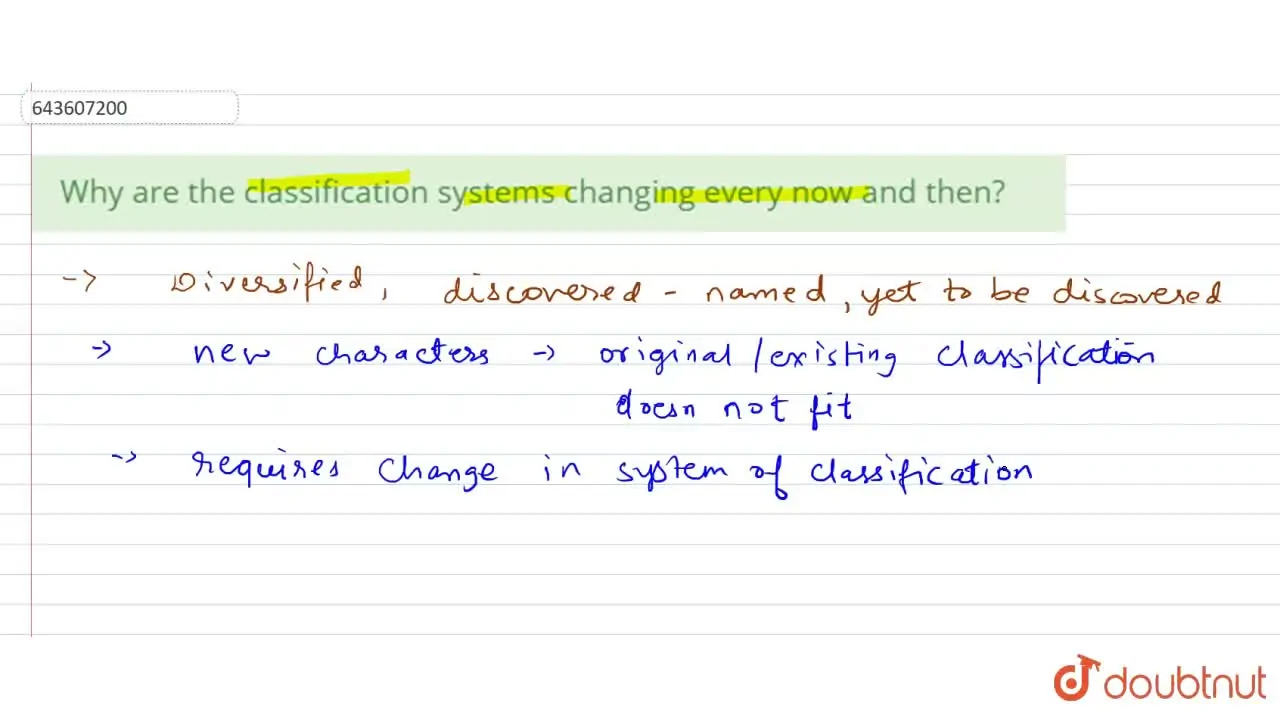 643607200
Why are the classification systems changing every now and then?
-> Diversified, discovered - named, yet to be discovered
-> new characters -> original / existing classification
doesn not fit
-> requires change in system of classification
doubtnut